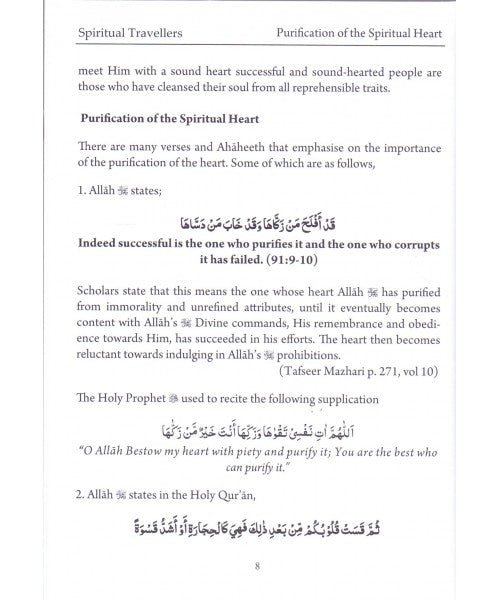 Spiritual Travellers Purification of the Spiritual Heart
meet Him with a sound heart successful and sound-hearted people are
those who have cleansed their soul from all reprehensible traits.
Purification of the Spiritual Heart
There are many verses and Ahāheeth that emphasise on the importance
of the purification of the heart. Some of which are as follows,
1. Allāh ﷻ states;
قَدْ أَفْلَحَ مَنْ زَكَّاهَا وَقَدْ خَابَ مَنْ دَسَّاهَا
Indeed successful is the one who purifies it and the one who corrupts
it has failed. (91:9-10)
Scholars state that this means the one whose heart Allāh ﷻ has purified
from immorality and unrefined attributes, until it eventually becomes
content with Allāh's ﷻ Divine commands, His remembrance and obedi-
ence towards Him, has succeeded in his efforts. The heart then becomes
reluctant towards indulging in Allāh's ﷻ prohibitions.
(Tafseer Mazhari p. 271, vol 10)
The Holy Prophet ﷺ used to recite the following supplication
اَللّٰهُمَّ اٰتِ نَفْسِيْ تَقْوَاهَا وَزَكِّهَا أَنْتَ خَيْرُ مَّنْ زَكّٰهَا
“O Allāh Bestow my heart with piety and purify it; You are the best who
can purify it.”
2. Allāh ﷻ states in the Holy Qur'ān,
ثُمَّ قَسَتْ قُلُوْبُكُمْ مِّنْ بَعْدِ ذٰلِكَ فَهِيَ كَالْحِجَارَةِ أَوْ أَشَدُّ قَسْوَةً
8